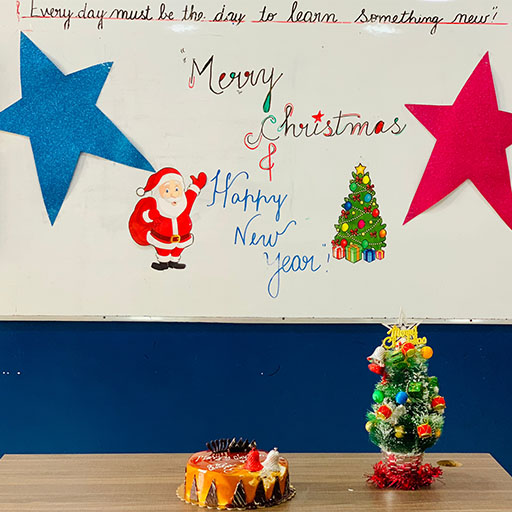 "Every day must be the day to learn something new"
"Merry
Christmas
&
Happy
New
Year!"